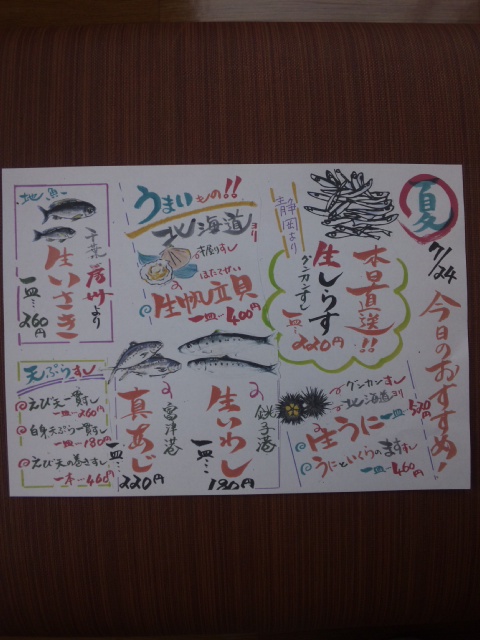 夏
7/24
今日のおすすめ!
静岡より
本日直送!!
生しらす
グンカンすし
一皿… 220円
グンカンすし
北海道ヨリ
生うに 一皿… 520円
うにといくらのますすし
一皿… 460円
うまいもの!!
北海道ヨリ
ほたてせい
生帆立貝
一皿… 400円
銚子港
生いわし
一皿… 180円
富津港
真あじ
一皿… 220円
地魚
千葉
より
生いさき
一皿… 260円
天ぷらすし
えび天一貫すし
一皿… 260円
白身天ぷら一貫すし
一皿… 180円
えび天の巻きすし
一本… 460円